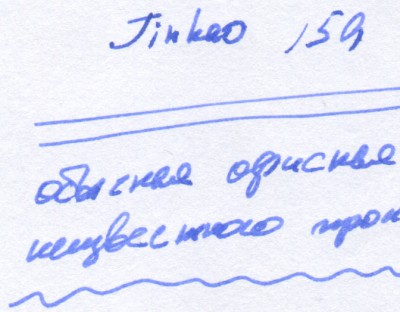 Jinhao 159
обычная офисная
неизвестного прои